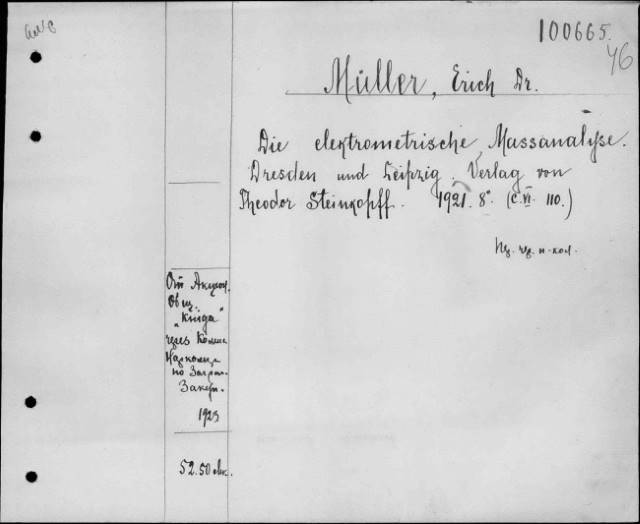 100665.
46
Müller, Erich Dr.
Die elektrometrische Massanalyse.
Dresden und Leipzig. Verlag von
Theodor Steinkopff. 1921. 8°. (C. VI. 110.)
От Акцион.
Общ.
"Книга"
через
по Загран.
Закуп.
1923
52.50